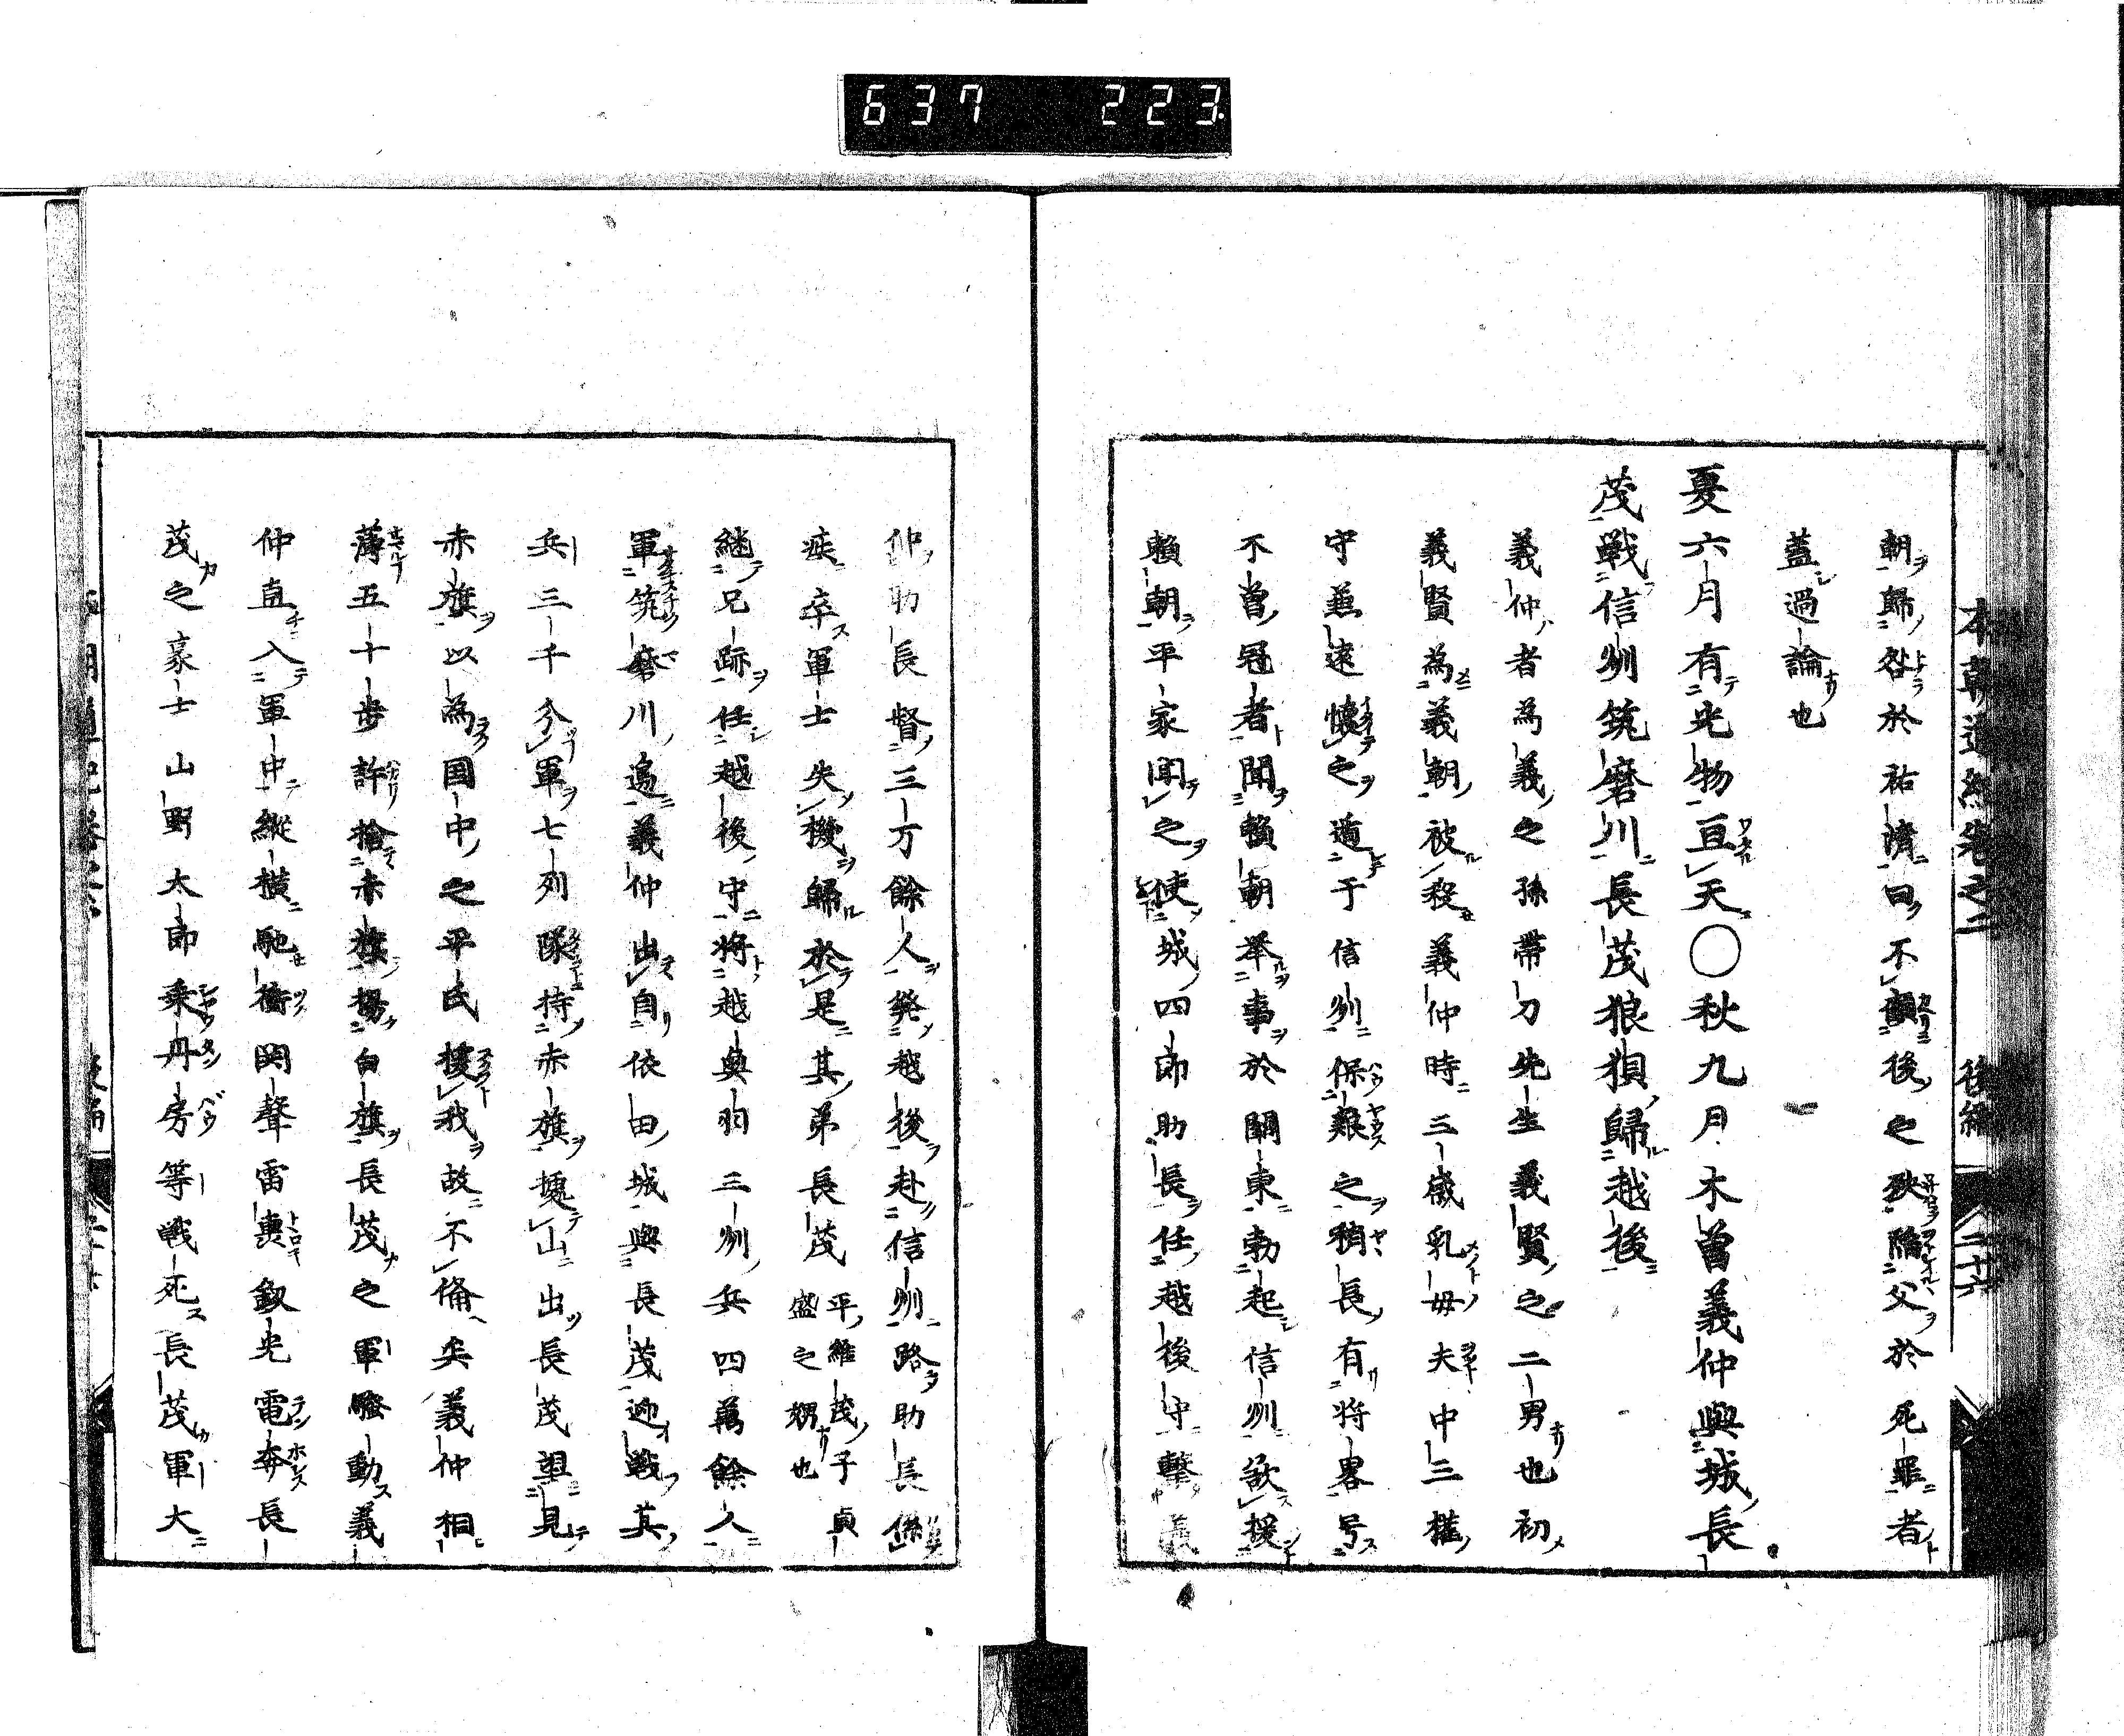 637 223
朝歸咎於祐清曰不顧後之殃陥父於死罪者
蓋過論也
夏六月有光物亘天○秋九月木曾義仲與城長
茂戦信州筑磨川長茂狼狽歸越後
義仲者為義之孫帯刀先生義賢之二男也初
義賢為義朝被殺義仲時三歳乳母夫中三權
守兼遠懐之遁于信州保艱之稍長有将畧号
木曽冠者聞頼朝举事於關東勃起信州欲援
頼朝平家聞之使城四郎助長任越後守撃義
仲助長督三万餘人発越後赴信州路助長係
疾卒軍士失機歸於是其弟長茂 平維茂子貞盛之甥也
継兄跡任越後守将越奥羽三州兵四萬餘人
軍筑磨川為義仲出自依田城與長茂迎戦其
兵三千分軍七列隊持赤旗撓山出長茂望見
赤旗以為国中之平氏援我故不備矣義仲相
薄五十歩許捨赤旗揚白旗長茂之軍騒動義
仲直入軍中縦横馳衝鬨聲雷轟釼光電奔長
茂之豪士山野太郎乗丹房等戦死長茂軍大
本朝通紀巻之二 後編 二十六